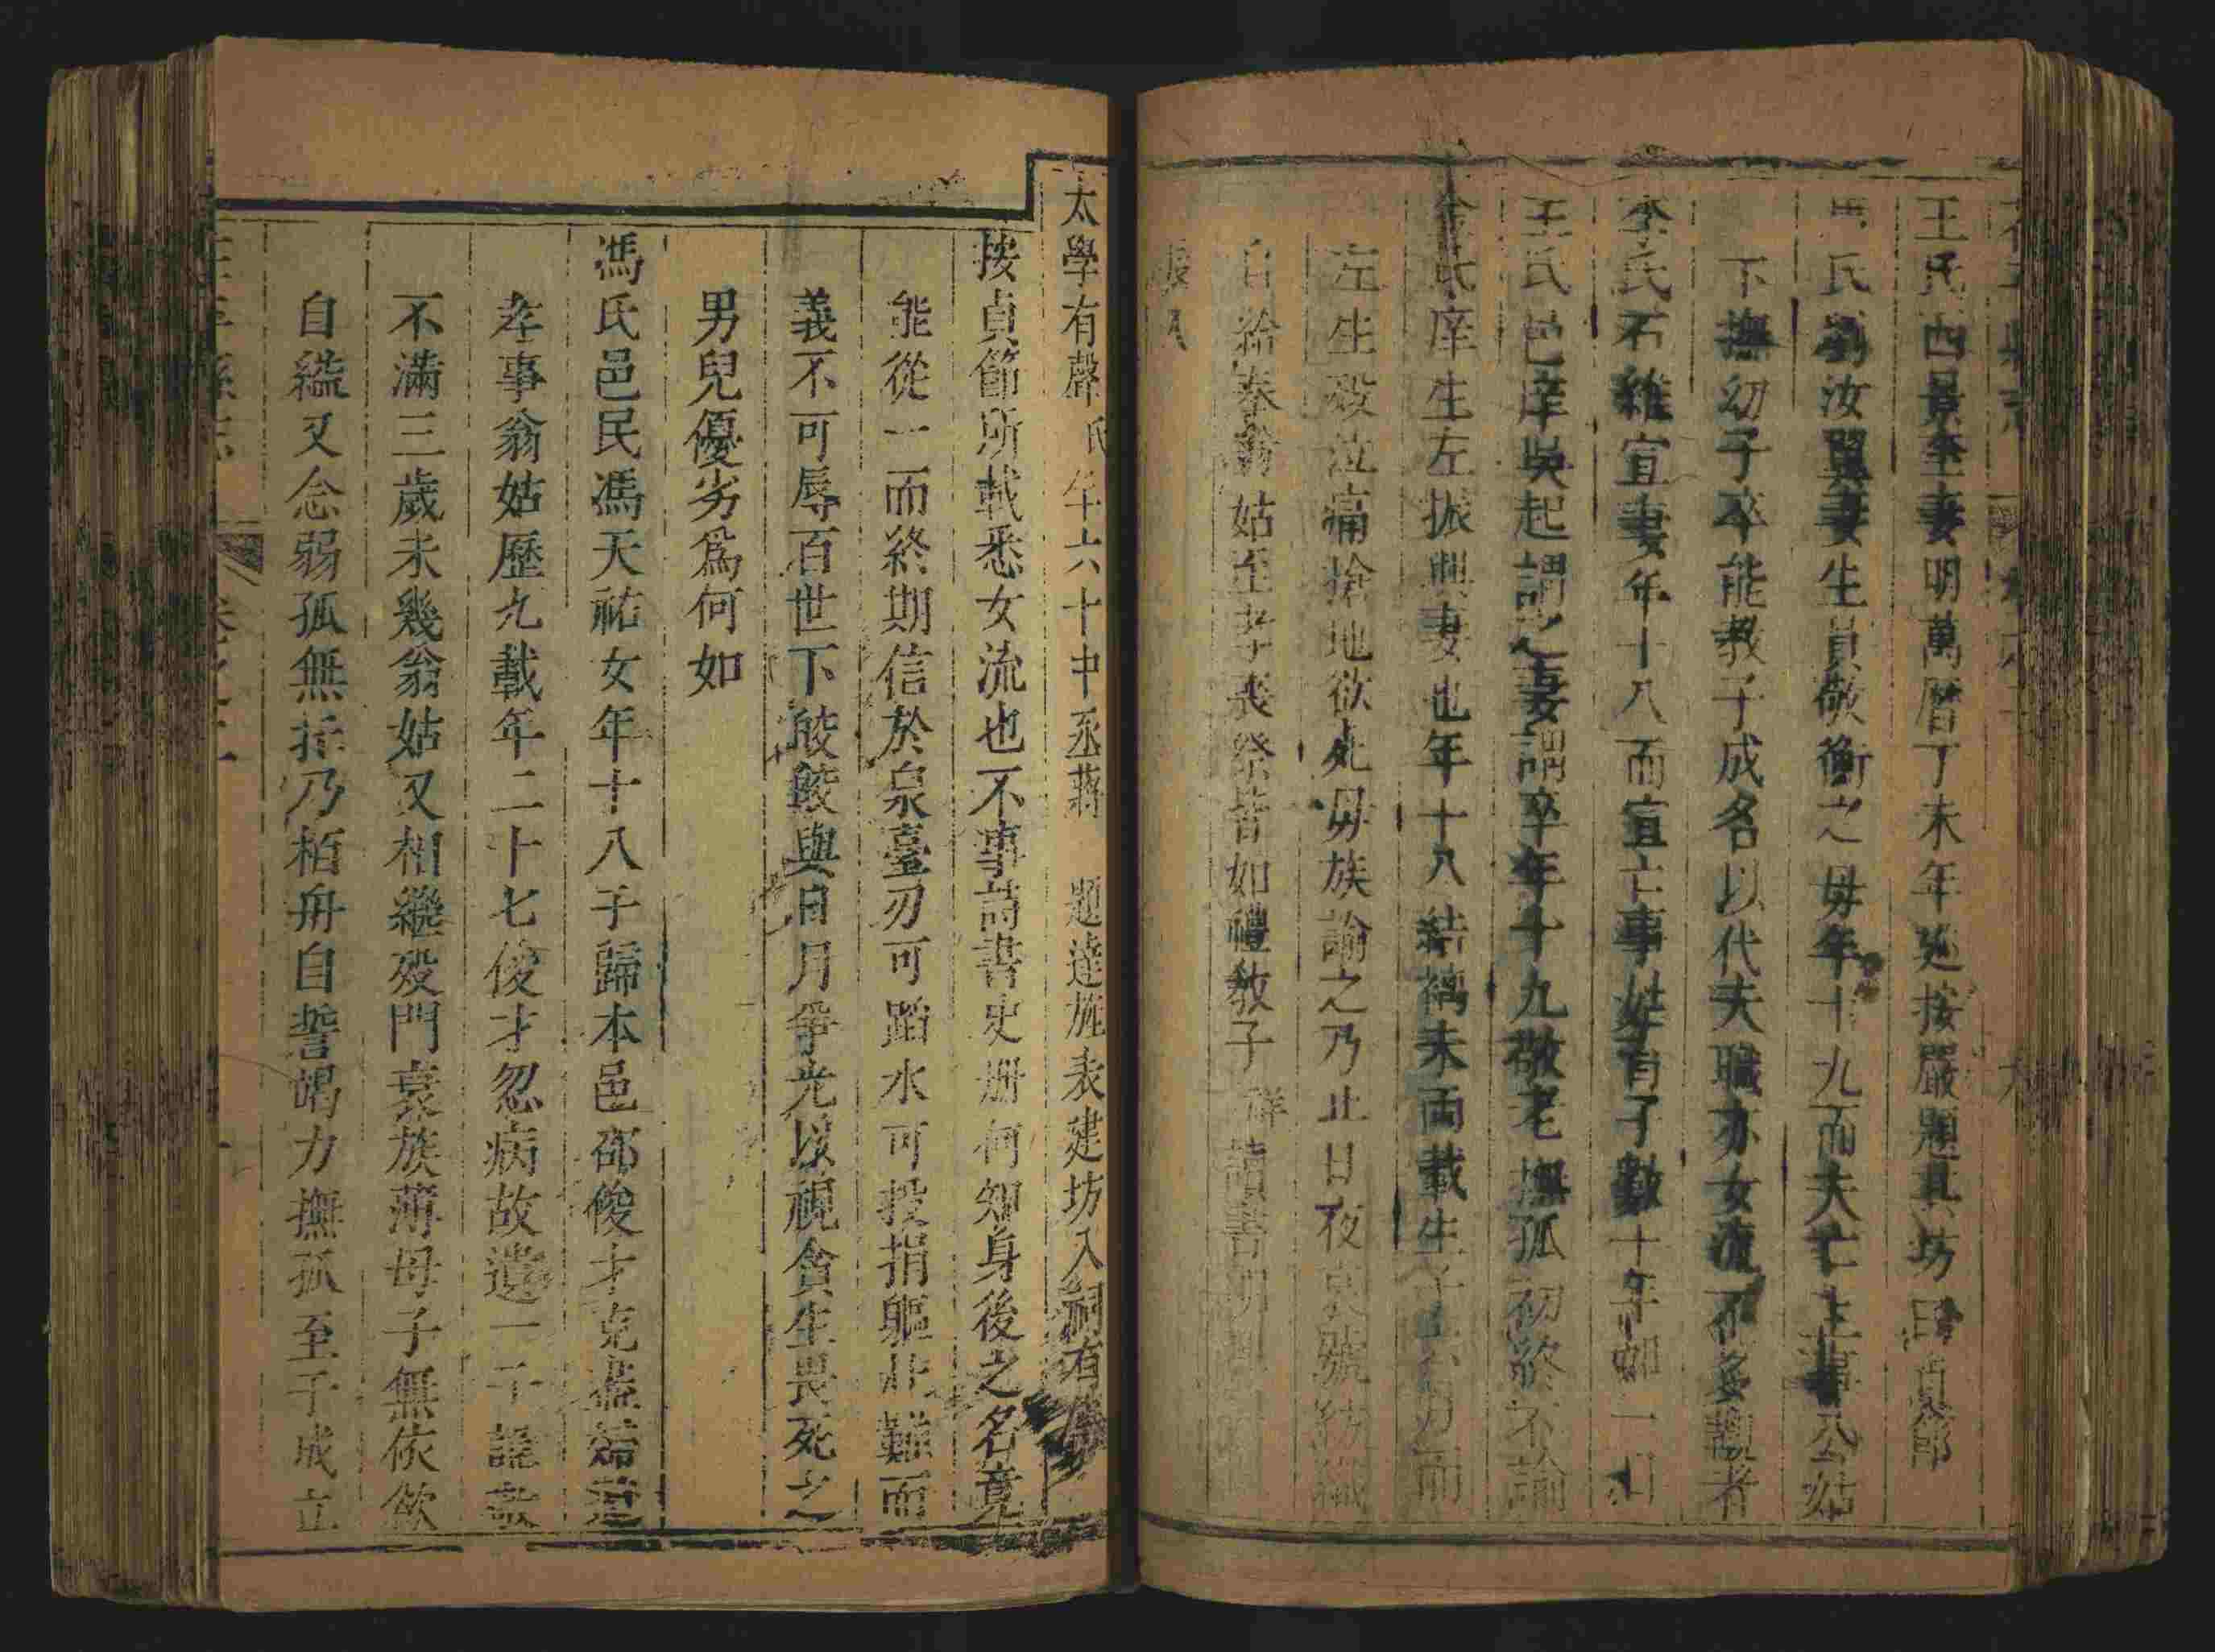 王氏西景奎妻明萬曆丁未年巡按嚴題其坊曰貞節
氏劉汝翼妻生員敬衡之母年十九而夫亡上事公姑
下撫幼子卒能教子成名以代夫職亦女流不多覯者
李氏石維宣妻年十八而宣亡事姑有子數十年如一日
王氏邑庠吳起謂之妻謂卒年十九敬老撫孤初終不諭
氏庠生左振興妻也年十八結褵未両載生子而
左生殁泣痛搶地欲死毋族諭之乃止日夜哀號紡織
自給奉翁姑至孝喪祭皆如禮教子讀書
太學有聲氏年六十中丞蔣題達旌表建坊入祠有傳
按貞節所載悉女流也不事詩書史册何知身後之名竟
能從一而終期信於泉臺刃可蹈水可投捐軀非難而
義不可辱百世下皎皎與日月爭光以視貪生畏死之
男兒優劣為何如
馮氏邑民馮天祐女年十八于歸本邑邵俊才克盡婦道
孝事翁姑歷九載年二十七俊才忽病故遺一子
不滿三歲未幾翁姑又相繼殁門衰族薄母子無依欲
自縊又念弱孤無託乃栢舟自誓竭力撫孤至子成立